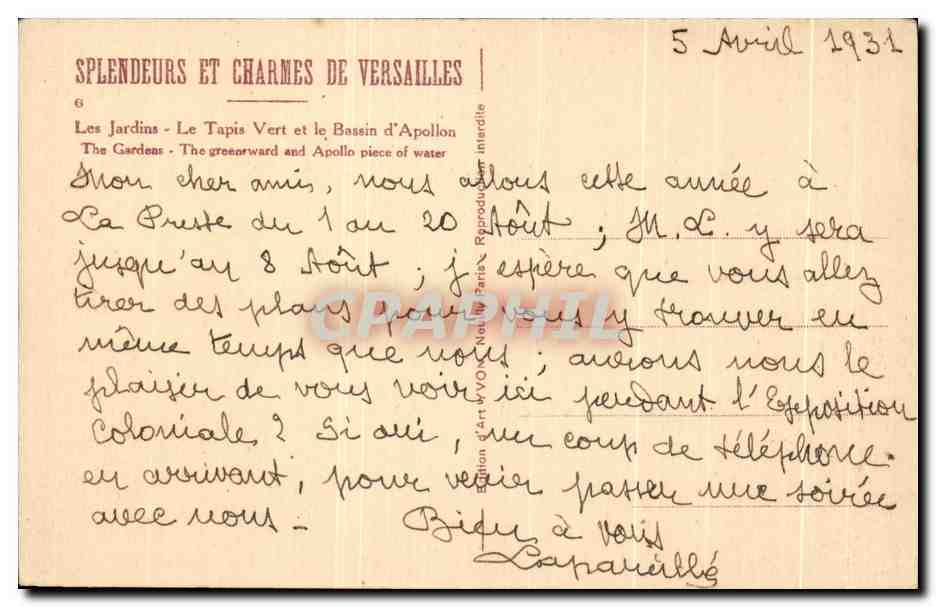 5 Avril 1931
SPLENDEURS ET CHARMES DE VERSAILLES
6
Les Jardins - Le Tapis Vert et le Bassin d'Apollon
The Gardens - The greensward and Apollo piece of water
Mon cher ami, nous allons cette année à
La Preste du 1 au 20 Août ; M. L. y sera
jusqu'au 8 Août ; j'espère que vous allez
tirer des plans pour vous y trouver en
même temps que nous ; aurons nous le
plaisir de vous voir ici pendant l'Exposition
Coloniale ? Si oui, un coup de téléphone
en arrivant, pour venir passer une soirée
avec nous -
Bien à vous
Edition d'Art YVON, Neuilly Paris - Reproduction interdite
CPAPHIL